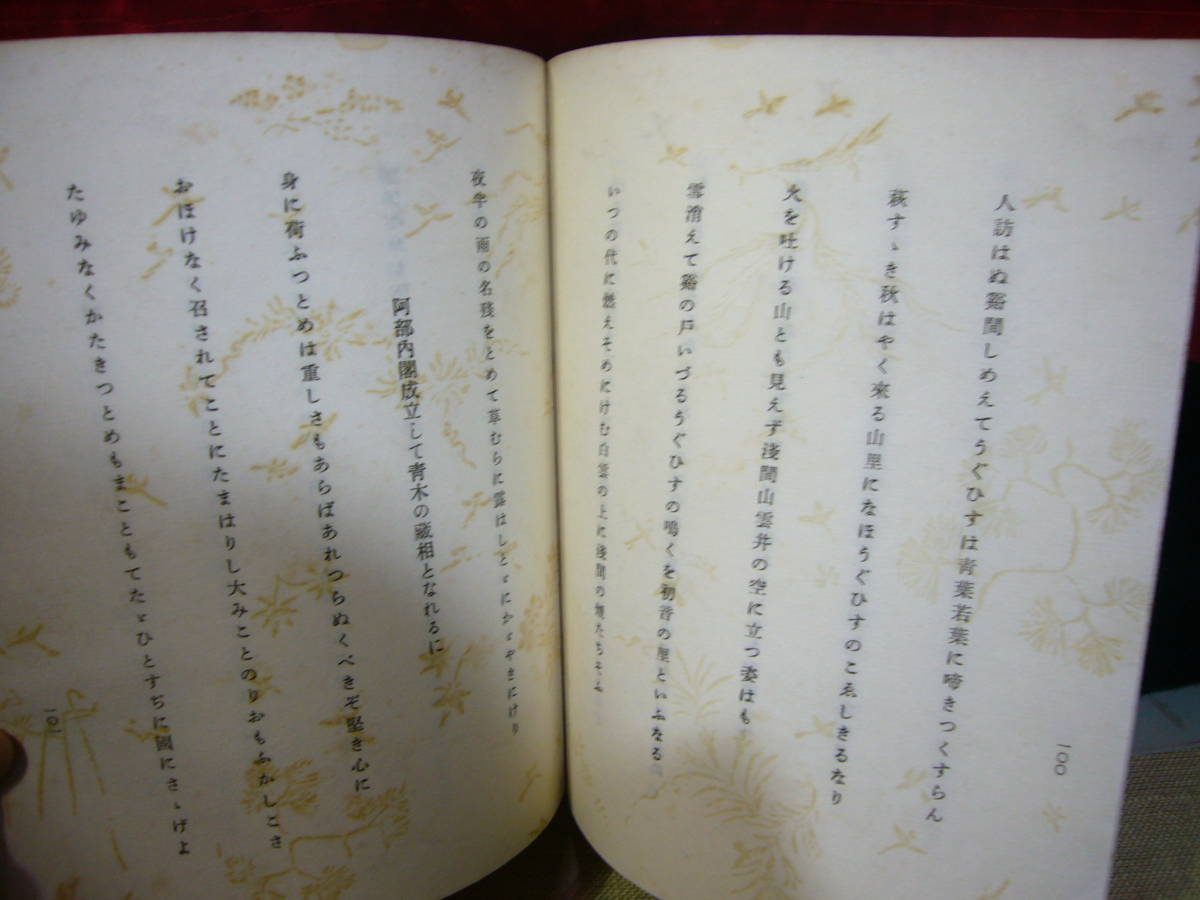 人訪はぬ谿間しめえてうぐひすは青葉若葉に啼きつくすらん
萩すゝき秋はやく來る山里になほうぐひすのこゑしきるなり
火を吐ける山とも見えず淺間山雲井の空に立つ姿はも
雪消えて谿の戸いづるうぐひすの鳴くを初音の里といふなる
いつの代に燃えそめにけむ白雲の上に淺間の煙たちそふ
一〇〇
夜半の雨の名殘をとめて草むらに露はしとゞにかゞやきにけり
阿部內閣成立して靑木の藏相となれるに
身に荷ふつとめは重しさもあらばあれつらぬくべきぞ堅き心に
おほけなく召されてことにたまはりし大みことのりおもふかしこさ
たゆみなくかたきつとめもまこともてたゞひとすぢに國にさゝげよ
一〇一